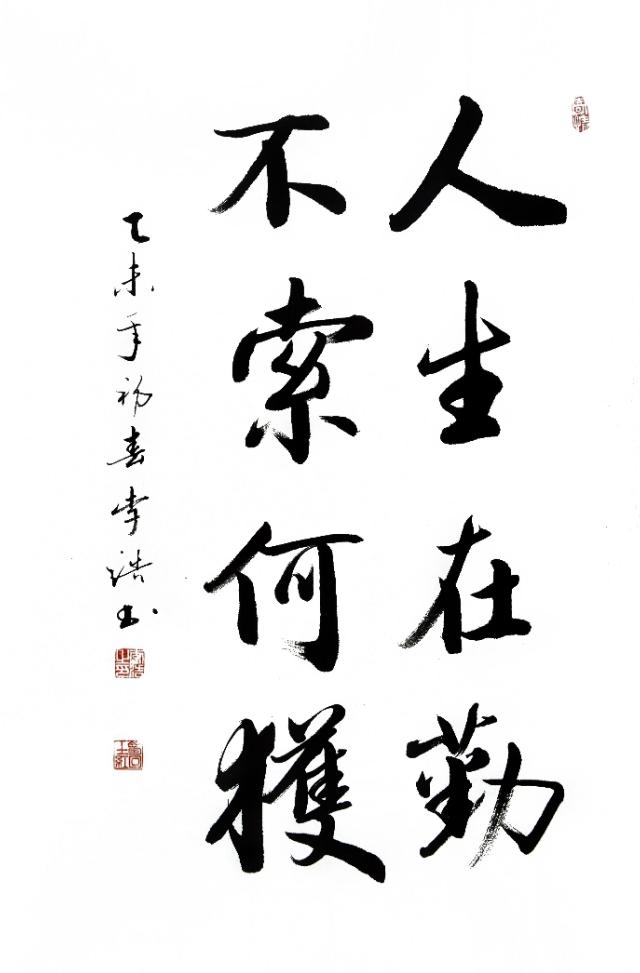 人生在勤
不索何獲
乙未年初春李浩书